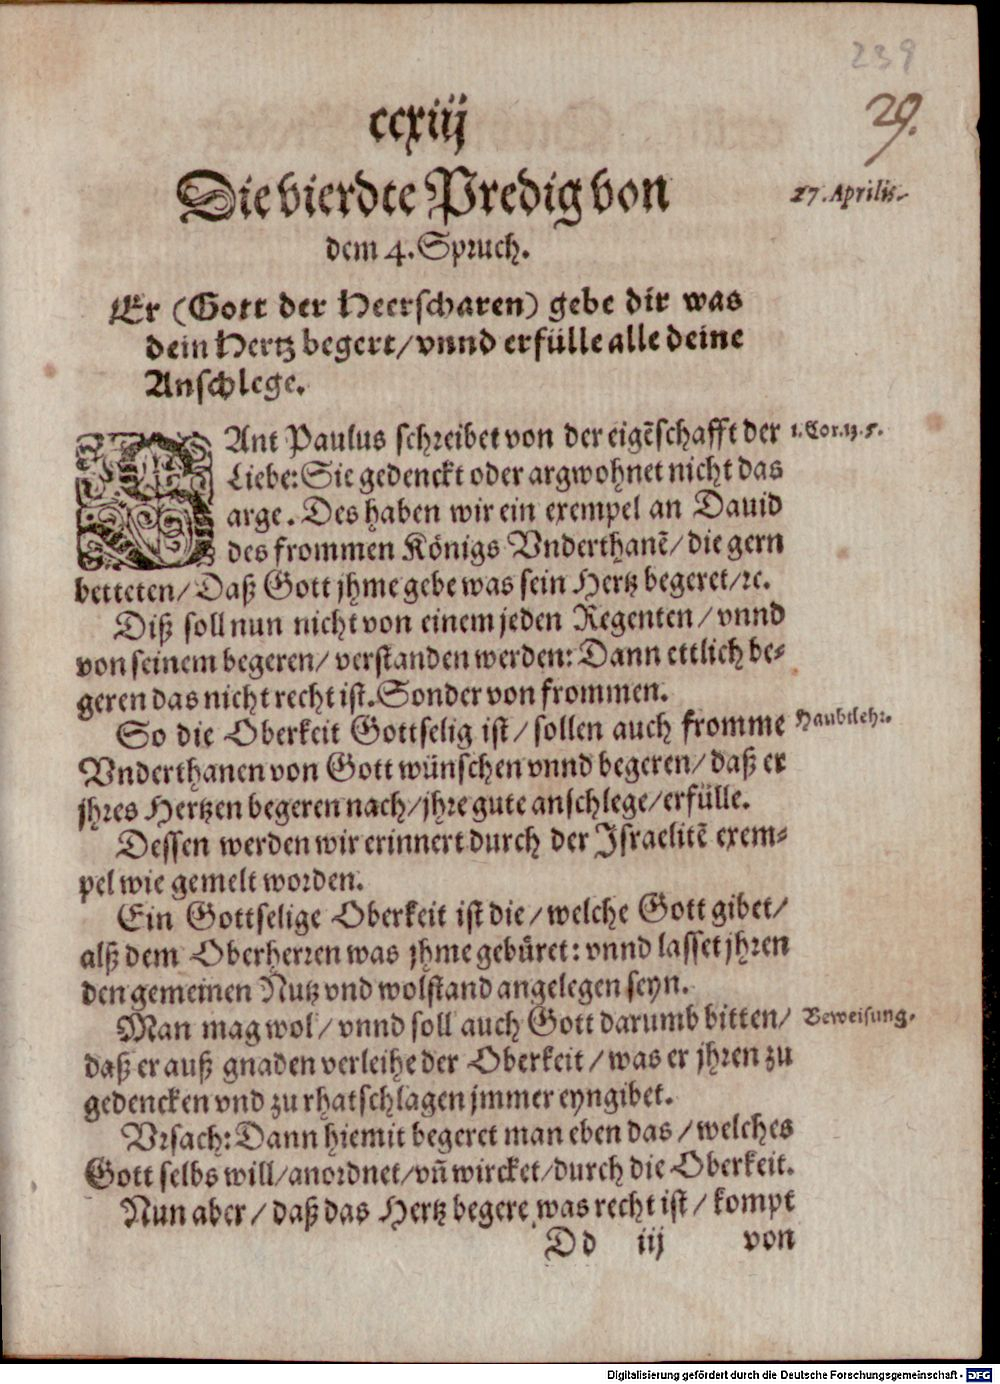 239
29.
ccxiij
Die vierdte Predig von
27. Aprilis.
dem 4. Spruch.
Er (Gott der Heerscharen) gebe dir was
dein Hertz begert/ vnnd erfülle alle deine
Anschlege.
SAnt Paulus schreibet von der eigẽschafft der
1. Cor. 13. 5.
Liebe: Sie gedenckt oder argwohnet nicht das
arge. Des haben wir ein exempel an Dauid
des frommen Königs Vnderthanẽ/ die gern
betteten/ Daß Gott jhme gebe was sein Hertz begeret/ ꝛc.
Diß soll nun nicht von einem jeden Regenten/ vnnd
von seinem begeren/ verstanden werden: Dann ettlich be-
geren das nicht recht ist. Sonder von frommen.
So die Oberkeit Gottselig ist/ sollen auch fromme
Haubtlehr.
Vnderthanen von Gott wünschen vnnd begeren/ daß er
jhres Hertzen begeren nach/ jhre gute anschlege/ erfülle.
Dessen werden wir erinnert durch der Israelitẽ exem-
pel wie gemelt worden.
Ein Gottselige Oberkeit ist die/ welche Gott gibet/
alß dem Oberherren was jhme gebüret: vnnd lasset jhren
den gemeinen Nutz vnd wolstand angelegen seyn.
Man mag wol/ vnnd soll auch Gott darumb bitten/
Beweisung.
daß er auß gnaden verleihe der Oberkeit/ was er jhren zu
gedencken vnd zu rhatschlagen jmmer eyngibet.
Vrsach: Dann hiemit begeret man eben das/ welches
Gott selbs will/ anordnet/ vñ wircket/ durch die Oberkeit.
Nun aber/ daß das Hertz begere was recht ist/ kompt
Dd iij von
Digitalisierung gefördert durch die Deutsche Forschungsgemeinschaft - DFG